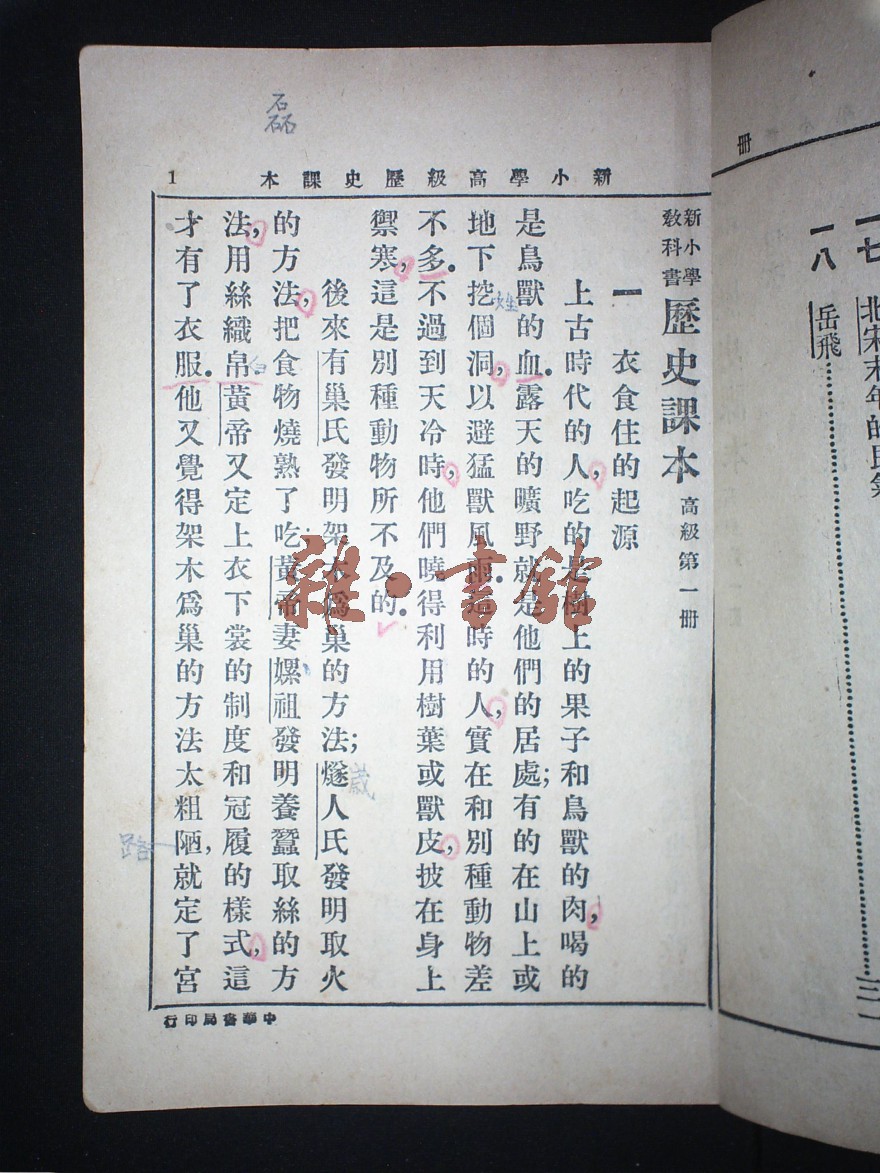 磊
新小學高級歷史課本
1
新小學教科書 歷史課本 高級第一冊
一 衣食住的起源
上古時代的人，吃的是樹上的果子和鳥獸的肉，喝的
是鳥獸的血。露天的曠野就是他們的居處；有的在山上或
地下挖個洞，以避猛獸風雨。這時的人，實在和別種動物差
不多。不過到天冷時，他們曉得利用樹葉或獸皮，披在身上
禦寒，這是別種動物所不及的。
後來有巢氏發明架木爲巢的方法；燧人氏發明取火
的方法，把食物燒熟了吃；黃帝妻嫘祖發明養蠶取絲的方
法，用絲織帛。黃帝又定上衣下裳的制度和冠履的樣式，這
才有了衣服。他又覺得架木爲巢的方法太粗陋，就定了宮
中華書局印行
雜·書館
冊
一七 北宋末年的民氣
一八 岳飛